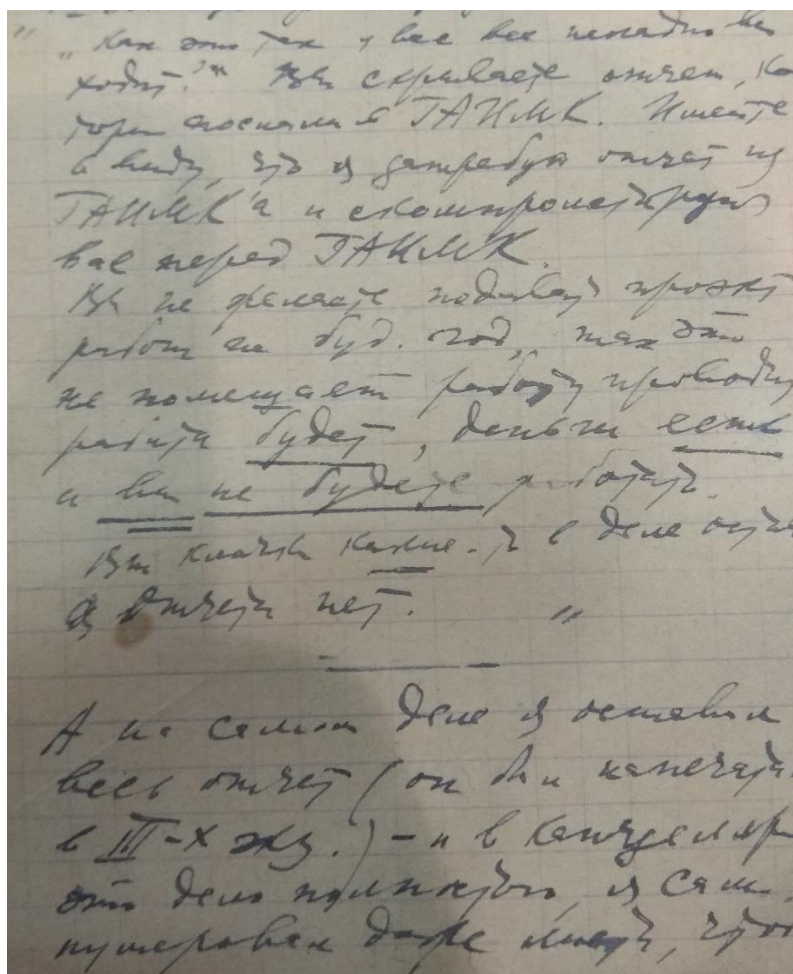 „Как это так у вас все неладно вы
ходит?" Вы скрываете отчет, ко
торый послали в ГАИМК. Имейте
в виду, что я затребую отчет из
ГАИМК'а и скомпрометирую
вас перед ГАИМК.
Вы не желаете подавать проэкт
работ на буд. год, так это
не помешает работу проводить
работа будет, деньги есть
и вы не будете работать.
Вы клочки какие-то в деле оста
а отчета нет. "
А на самом деле я оставил
весь отчет (он был напечата
в III-х экз.) – и в канцеляр
это дело полностью, я сам
нумеровал даже листы, что